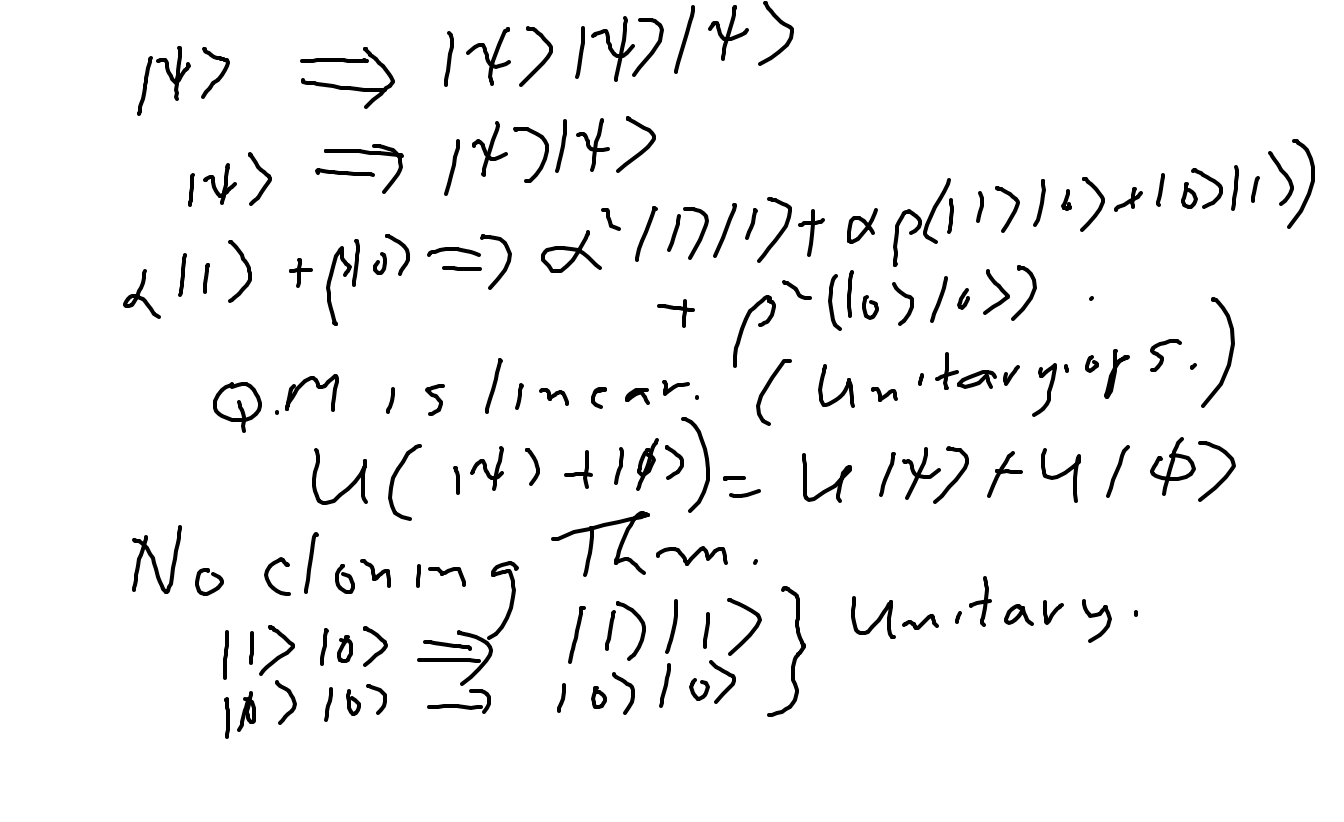 |ψ> ⇒ |ψ>|ψ>|ψ>
|ψ> ⇒ |ψ>|ψ>
α|1> + β|0> ⇒ α²|1>|1> + αβ(|1>|0> + |0>|1>)
+ β²(|0>|0>).
Q.M is linear. (Unitary. ops.)
U(|ψ> + |ϕ>) = U|ψ> + U|ϕ>
No cloning Thm.
|1>|0> ⇒ |1>|1> } Unitary.
|0>|0> ⇒ |0>|0>